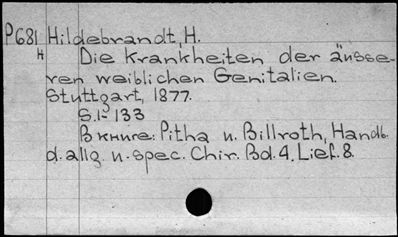 P681 Hildebrandt, H.
H Die Krankheiten der äusse-
ren weiblichen Genitalien.
Stuttgart, 1877.
S.1-133
В книге: Pitha u. Billroth, Handb.
d. allg. u. spec. Chir. Bd. 4. Lief. 8.